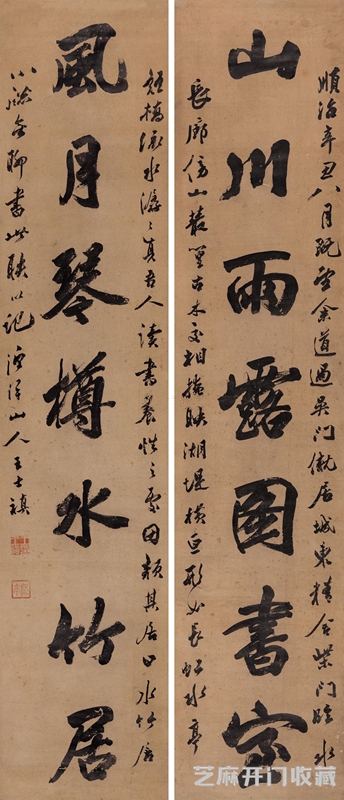 山川雨露圖書室
順治辛丑八月既望余道過吳門僦居城東精舍柴門臨水
長廊倚山叢篁古木交相掩映湖堤橫亘形如長虹水亭
風月琴樽水竹居
短橋流水潺潺真吾人讀書養性之處因顏其居曰水竹居
小憩無聊書此聯以記漁洋山人王士禛
芝麻开门收藏